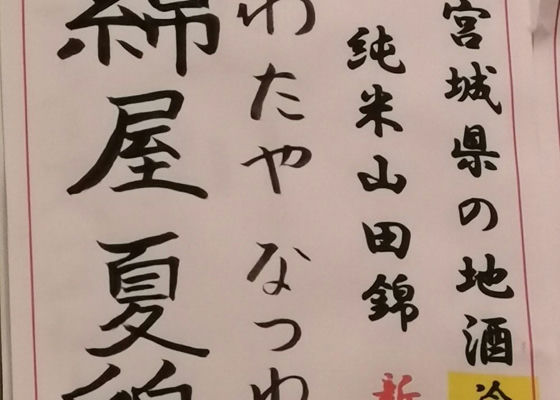 宮城県の地酒 冷
純米山田錦 新
わたや なつゆ
綿屋 夏